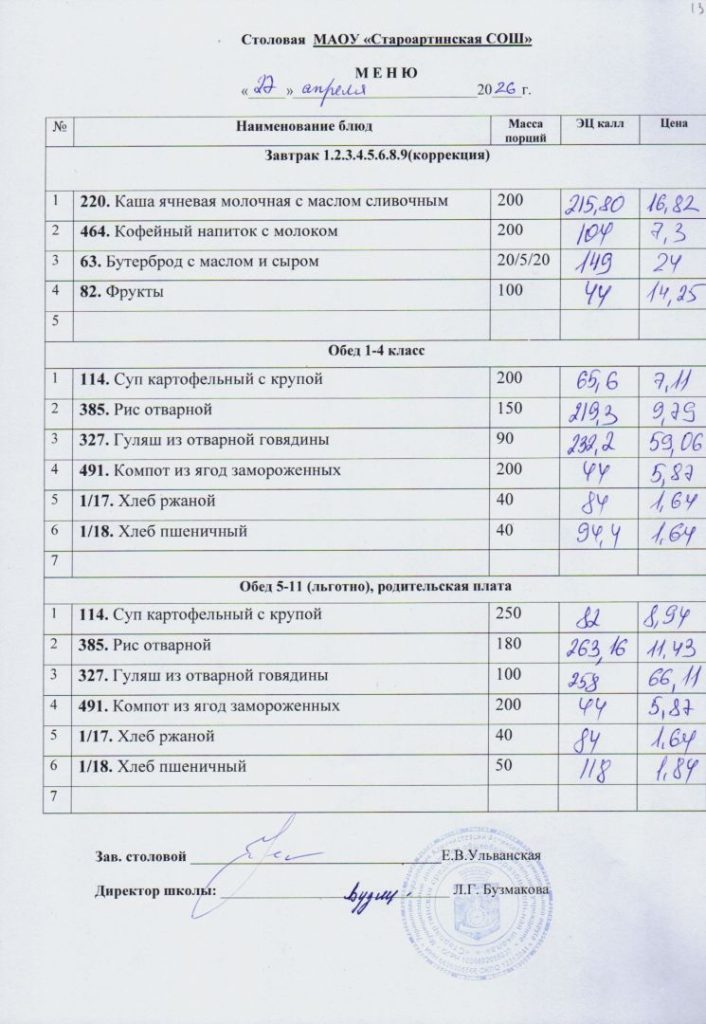 13
Столовая МАОУ «Староартинская СОШ»
М Е Н Ю
«27» апреля 2026 г.
№ Наименование блюд Масса порций ЭЦ калл Цена
Завтрак 1.2.3.4.5.6.8.9(коррекция)
1 220. Каша ячневая молочная с маслом сливочным 200 215,80 16,82
2 464. Кофейный напиток с молоком 200 104 7,3
3 63. Бутерброд с маслом и сыром 20/5/20 149 24
4 82. Фрукты 100 44 14,25
5
Обед 1-4 класс
1 114. Суп картофельный с крупой 200 65,6 7,11
2 385. Рис отварной 150 219,3 9,79
3 327. Гуляш из отварной говядины 90 232,2 59,06
4 491. Компот из ягод замороженных 200 44 5,87
5 1/17. Хлеб ржаной 40 84 1,64
6 1/18. Хлеб пшеничный 40 94,4 1,64
7
Обед 5-11 (льготно), родительская плата
1 114. Суп картофельный с крупой 250 82 8,94
2 385. Рис отварной 180 263,16 11,43
3 327. Гуляш из отварной говядины 100 258 66,11
4 491. Компот из ягод замороженных 200 44 5,87
5 1/17. Хлеб ржаной 40 84 1,64
6 1/18. Хлеб пшеничный 50 118 1,84
7
Зав. столовой Е.В.Ульванская
Директор школы: Л.Г. Бузмакова